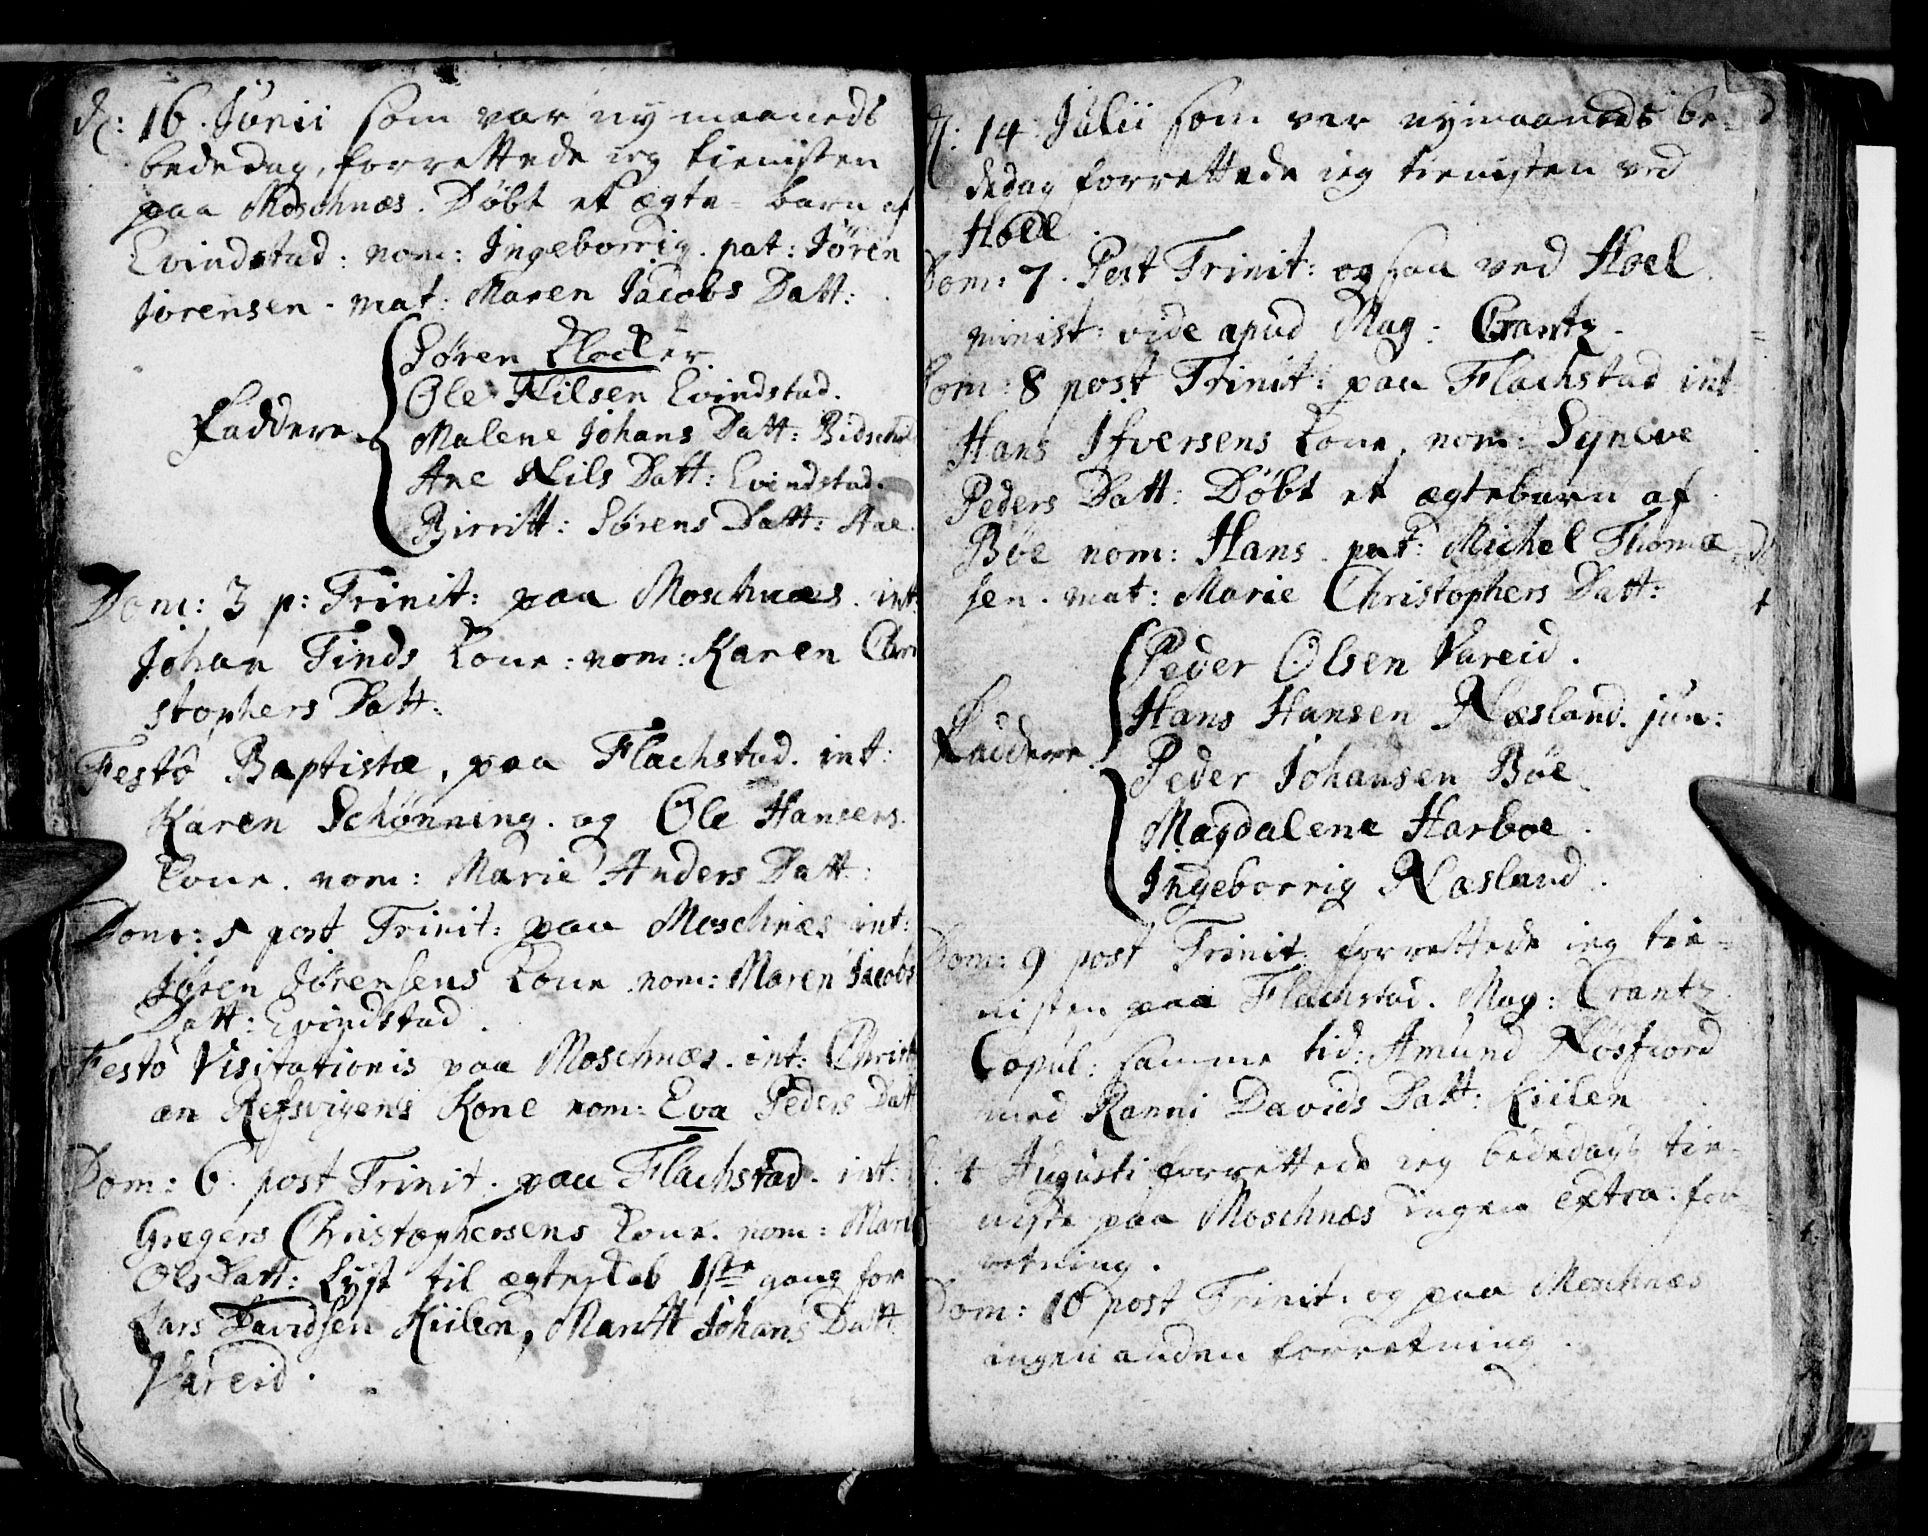 d: 16. Junii som var ny maaneds
bededag, forrettede ieg tienisten
paa Moschnæs. Døbt et ægte-barn af
Evindstad: nom: Ingeborrig. pat: Jøren
Jørensen. mat: Maren Jacobs Datt:
Søren Klocker
Ole Nilsen Evindstad.
Faddere
Malene Johans Datt:
Ane Nils Datt: Evindstad.
Birritt: Sørens Datt: Aae
Dom: 3 p: Trinit: paa Moschnæs. int:
Johan Finds Kone: nom: Karen Chri
stophers Datt:
Festo Baptistæ, paa Flachstad. int:
Karen Schønning. og Ole Hansens
Kone. nom: Marie Anders Datt:
Dom: 5 post Trinit: paa Moschnæs int:
Jøren Jørensens Kone nom: Maren Jacobs
Datt: Evindstad.
Festo Visitationis paa Moschnæs. int: Christi
an Refsvigens Kone nom: Eva Peders Datt
Dom: 6. post Trinit. paa Flachstad. int:
Gregers Christophersens Kone. nom: Marit
Ols Datt: Lyst til ægteskab 1ste gang for
Lars Davidsen Kiilen, Maritt Johans Datt
Vareid.
d: 14 Julii som var nymaaneds be-
dedag forrettede ieg tienisten ved
Hoel
Dom: 7. Post Trinit: ogsaa ved Hoel.
minist: vide apud Mag: Crantz.
Dom: 8 post Trinit: paa Flachstad int
Hans Ifversens Kone, nom: Synøve
Peders Datt: Døbt et ægtebarn af
Bøe nom: Hans. pat: Michel Thomæ
sen. mat: Marie Christophers Datt:
Peder Olsen Vareid.
Hans Hansen Næsland. jun:
Faddere
Peder Johansen Bøe
Magdalene Harboe.
Ingeborrig Næsland.
Dom: 9 post Trinit forrettede ieg tie-
nisten paa Flachstad. Mag: Crantz
Copul: samme tid: Amund Nosfiord
med Ranni Davids Datt: Kiilen
d. 4 Augusti forrettede ieg bededags tie-
niste paa Moschnæs ingen extra. for
retning.
Dom: 10 post Trinit. og paa Moschnæs
ingen anden forretning.